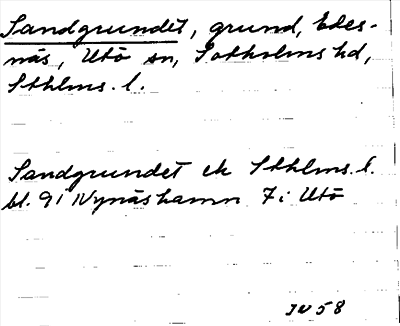 Sandgrundet, grund, Edes-
näs, Utö sn, Sotholms hd,
Sthlms. l.
Sandgrundet ek Sthlms. l.
bl. 9 i Nynäshamn 7 i Utö
IW 58